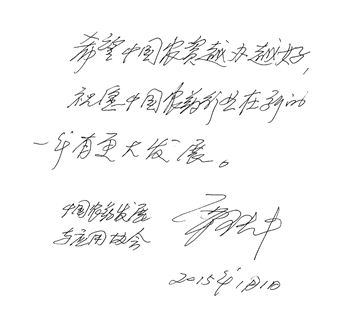 希望中国农资越办越好,
祝愿中国农药行业在新的
一年有更大发展。
中国农药发展
与应用协会
2015年1月1日